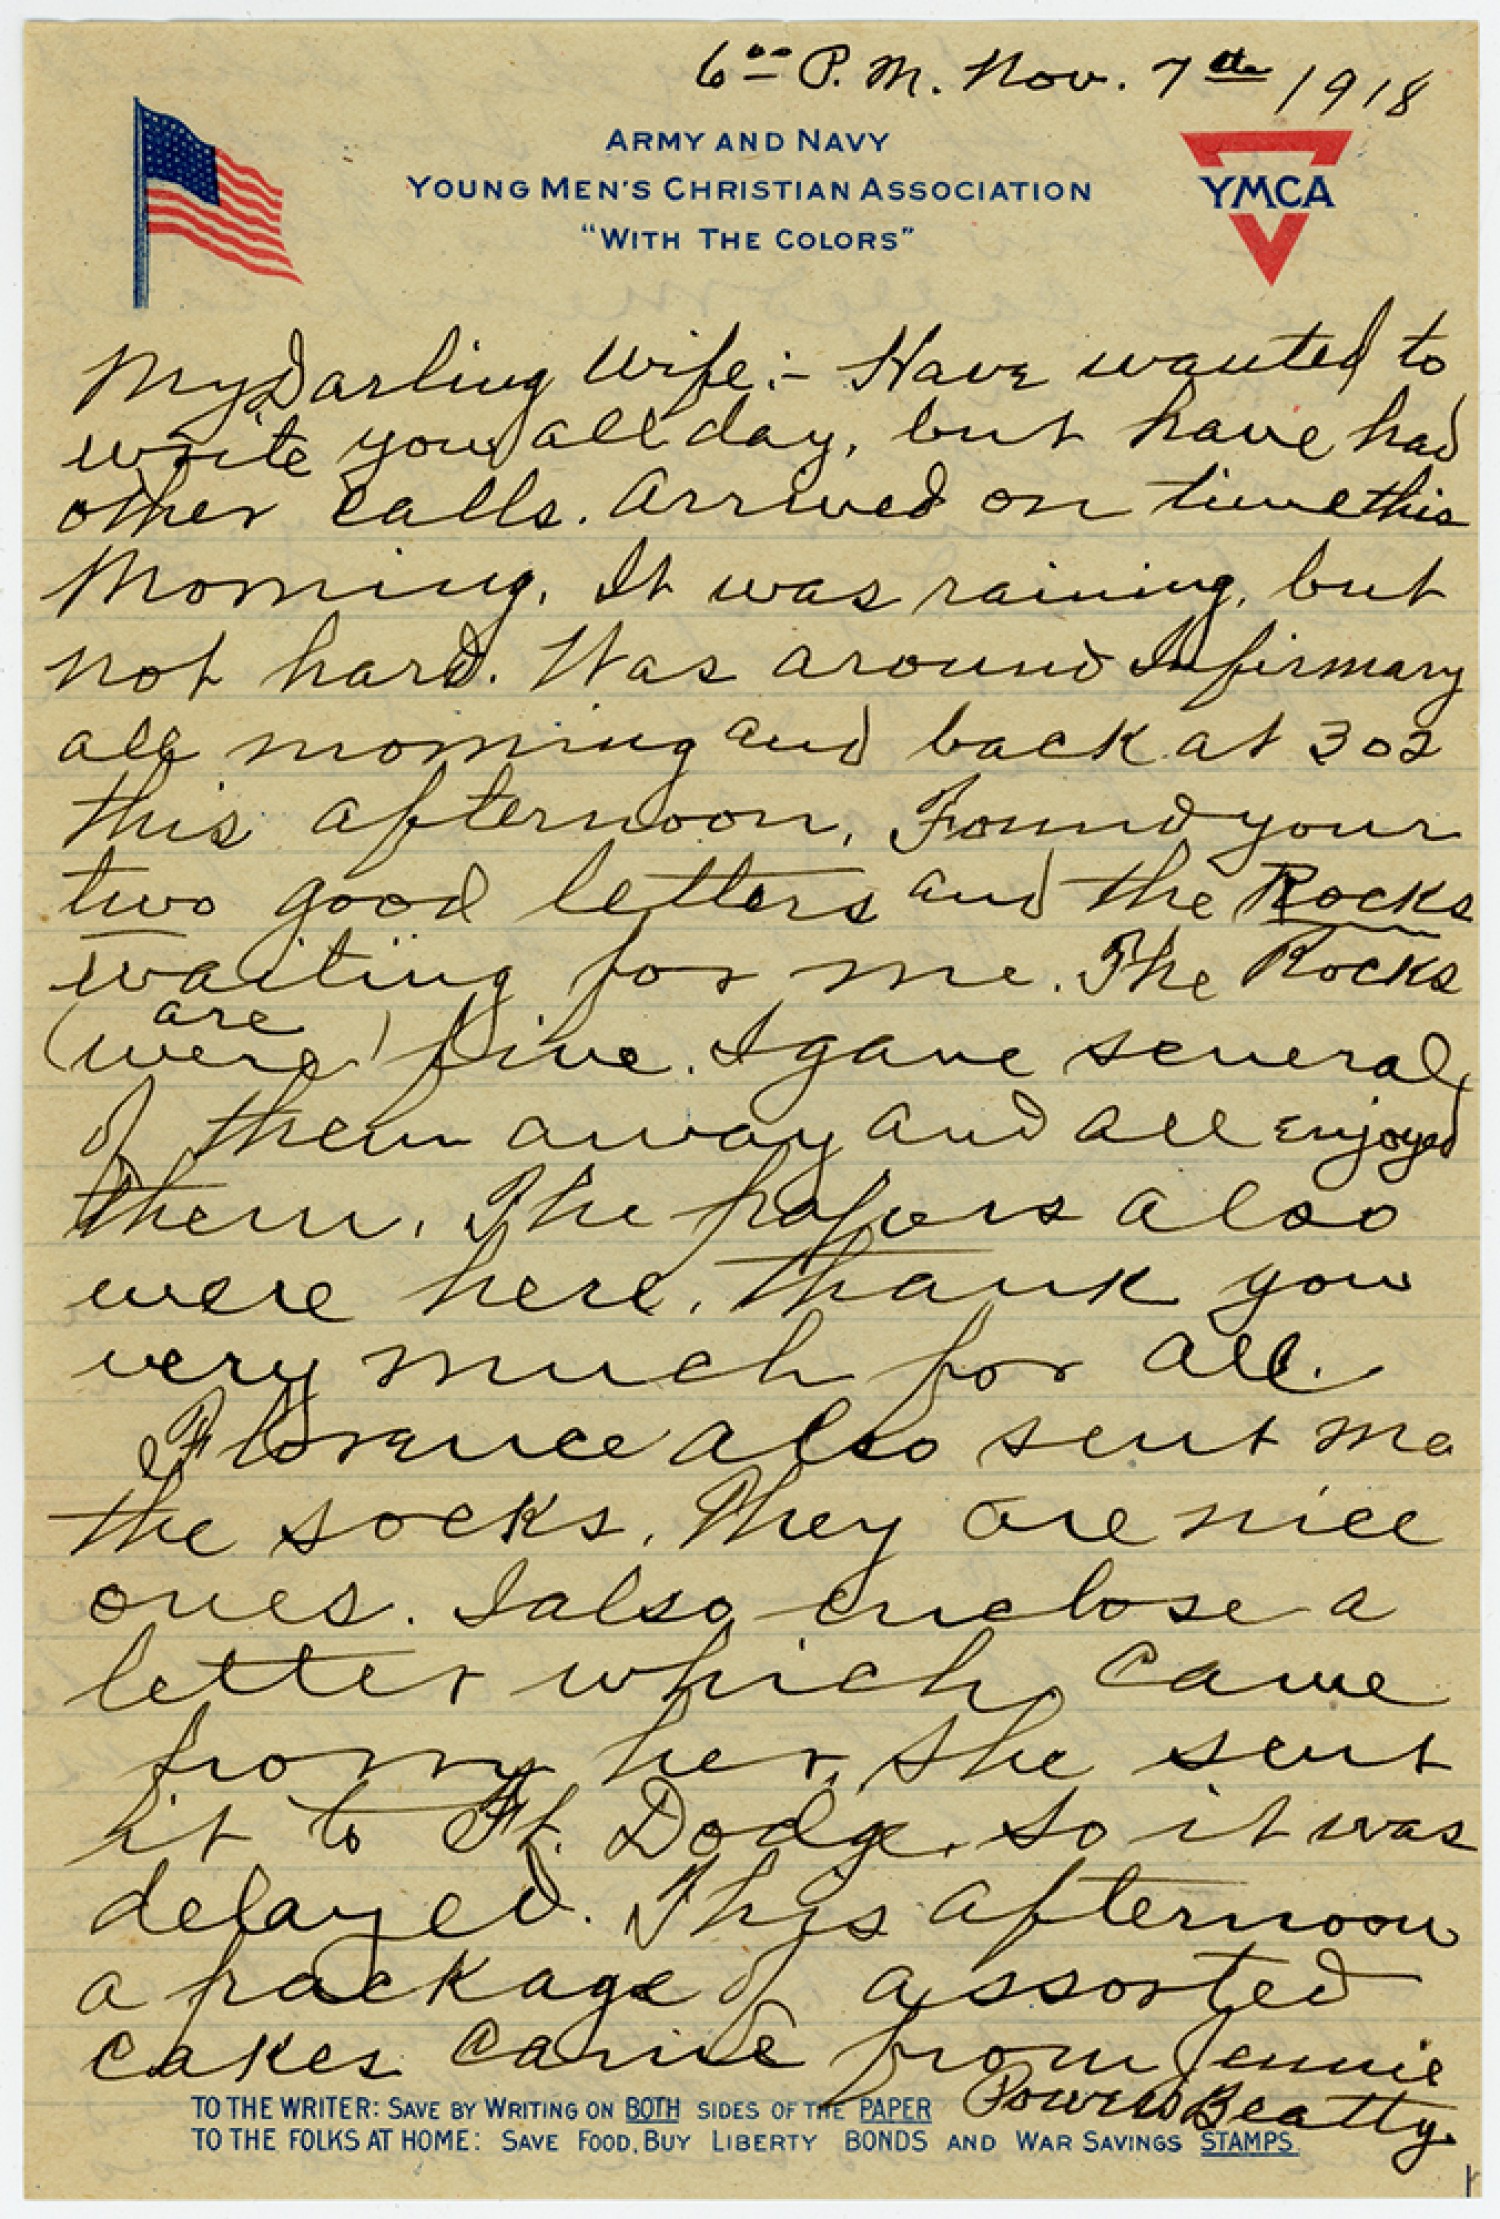 6⁰⁰ P.M. Nov. 7th 1918
ARMY AND NAVY
YOUNG MEN'S CHRISTIAN ASSOCIATION
"WITH THE COLORS"
YMCA
My Darling Wife:- Have wanted to
write you all day, but have had
other calls. Arrived on time this
Morning. It was raining, but
not hard. Was around Infirmary
all morning and back at 302
this afternoon. Found your
two good letters and the Rocks
waiting for me. The Rocks
are
(were) fine. I gave several
of them away and all enjoyed
them. The papers also
were here. Thank you
very much for all.
Florence also sent me
the socks. They are nice
ones. I also enclose a
letter which came
from her. She sent
it to Ft. Dodge, so it was
delayed. This afternoon
a package of assorted
cakes came from Jennie
Powers Beatty.
TO THE WRITER: SAVE BY WRITING ON BOTH SIDES OF THE PAPER
TO THE FOLKS AT HOME: SAVE FOOD, BUY LIBERTY BONDS AND WAR SAVINGS STAMPS
1